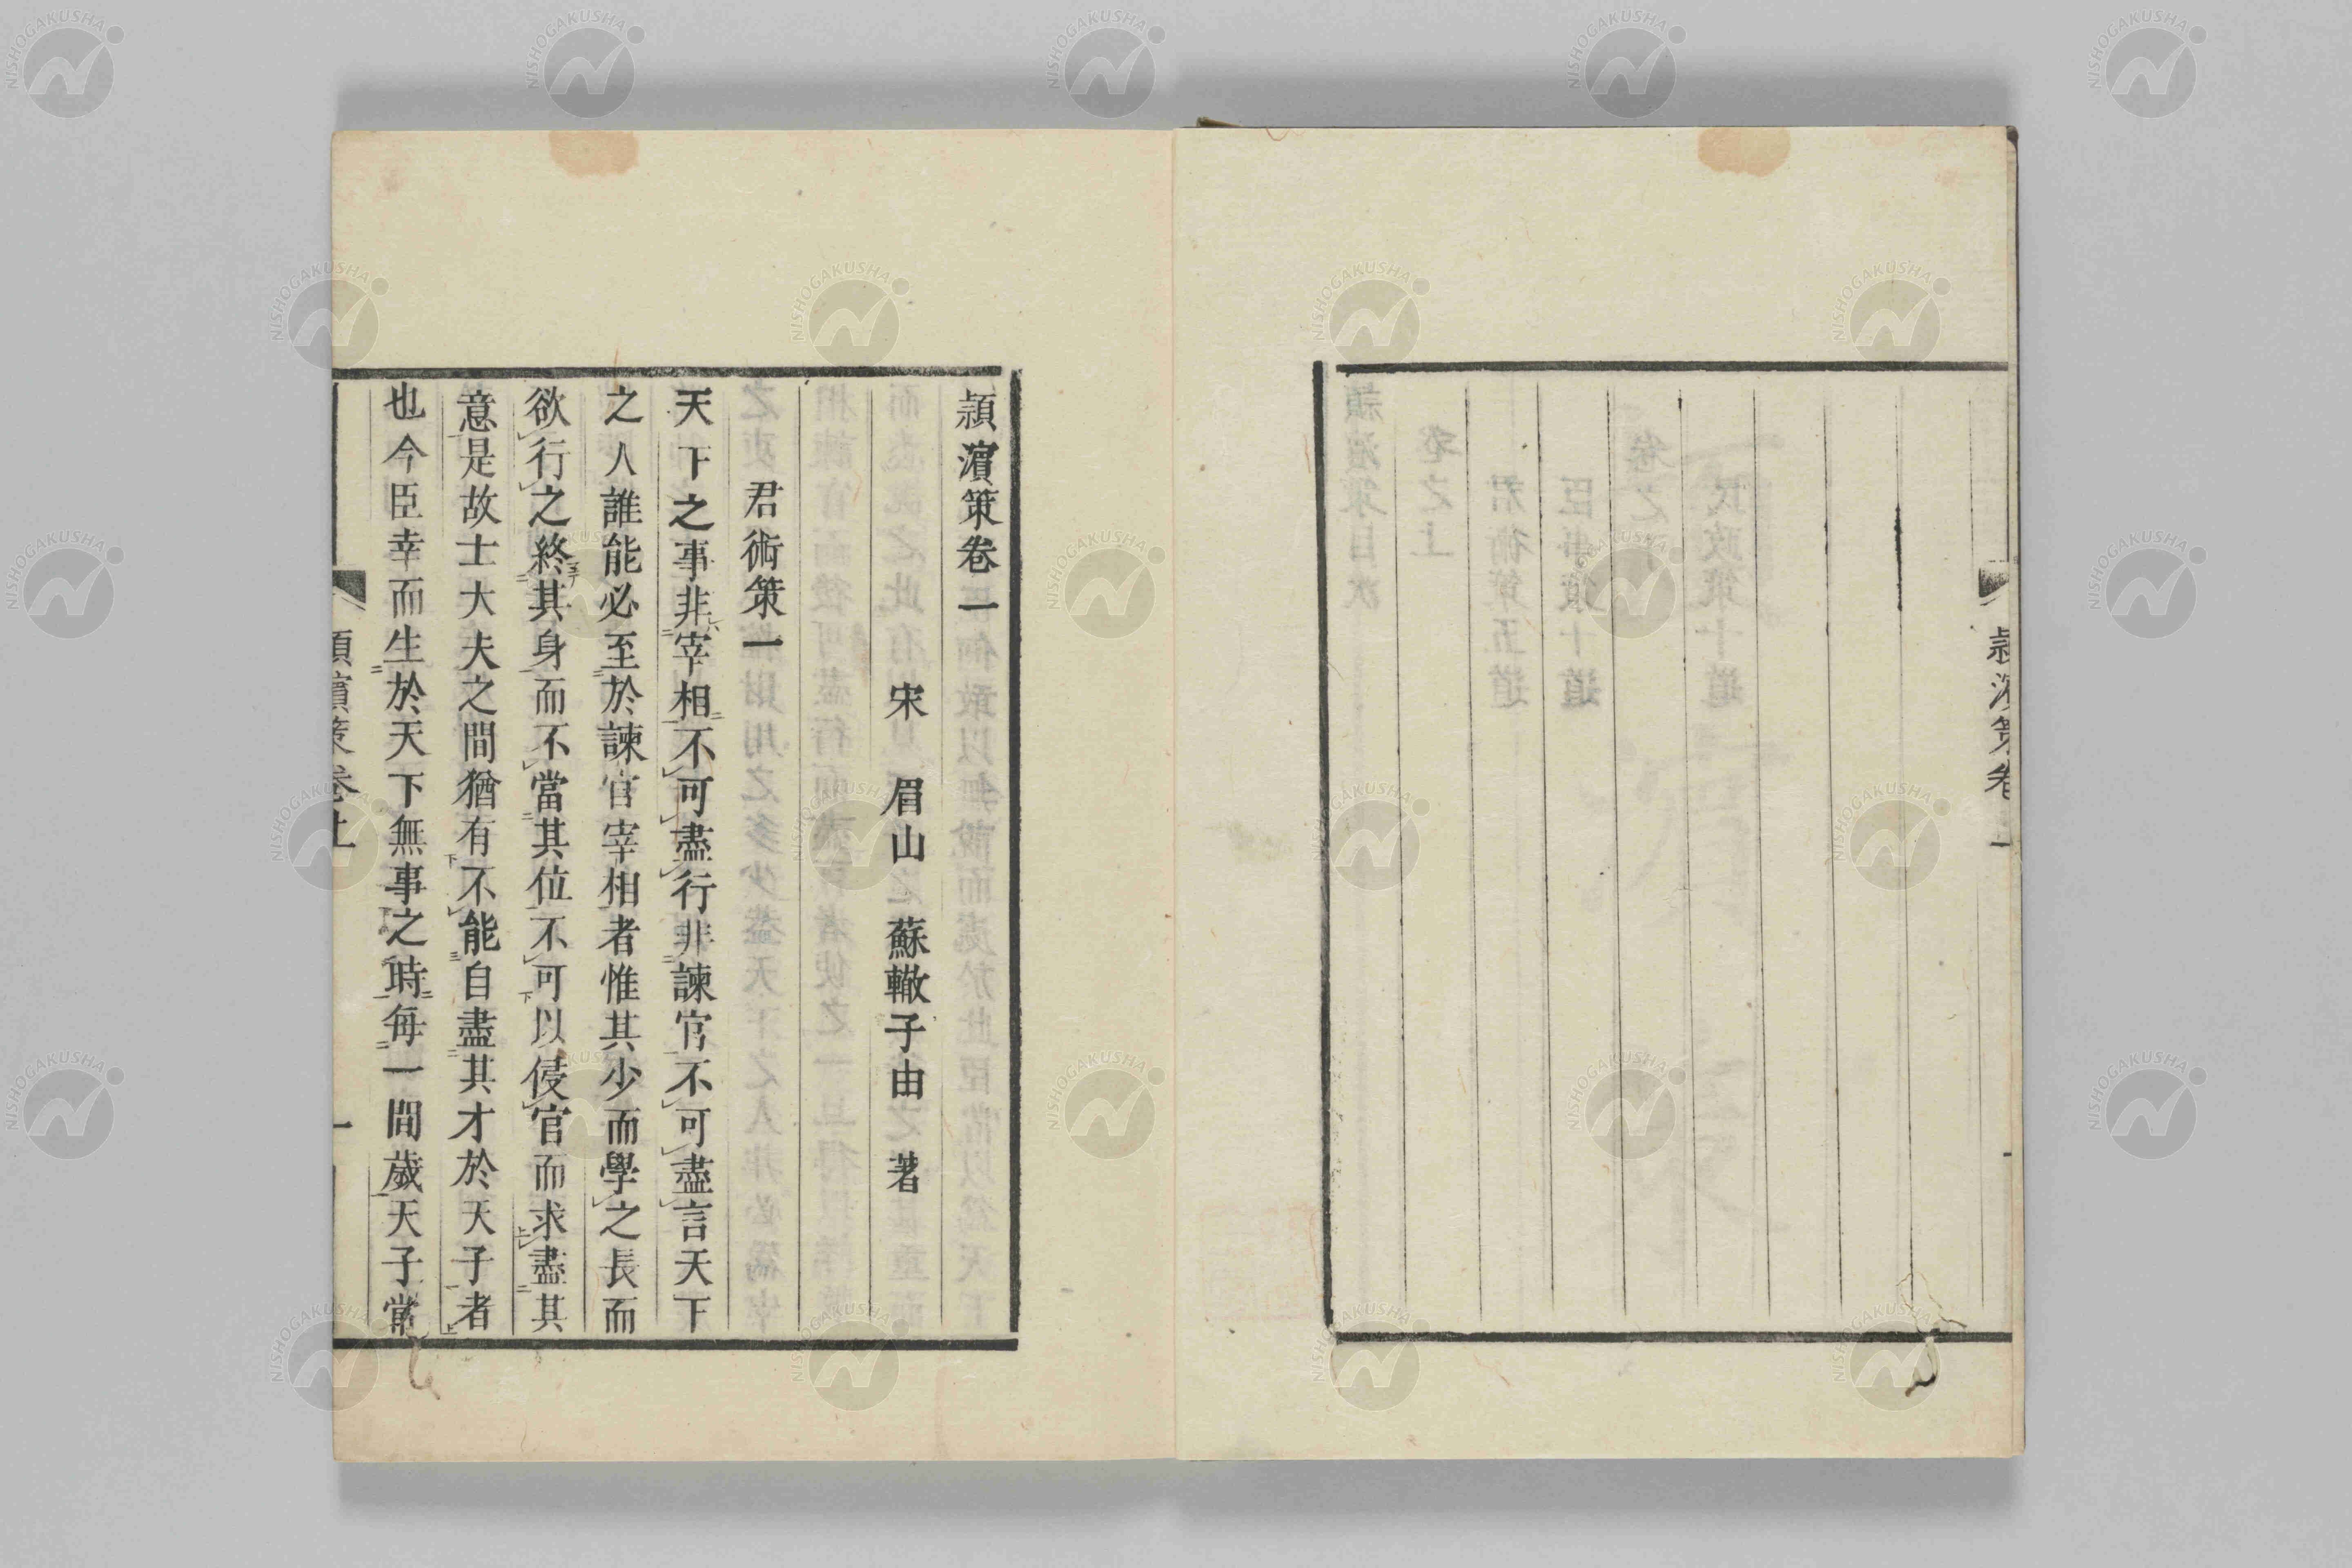 潁濵策卷一
潁濵策卷一
宋 眉山 蘇轍子由 著
君術策一
天下之事非宰相不可盡行非諫官不可盡言天下
之人誰能必至於諫官宰相者惟其少而學之長而
欲行之終其身而不當其位不可以侵官而求盡其
意是故士大夫之間猶有不能自盡其才於天子者
也今臣幸而生於天下無事之時每一間歲天子常
潁濵策卷上
一
NISHOGAKUSHA